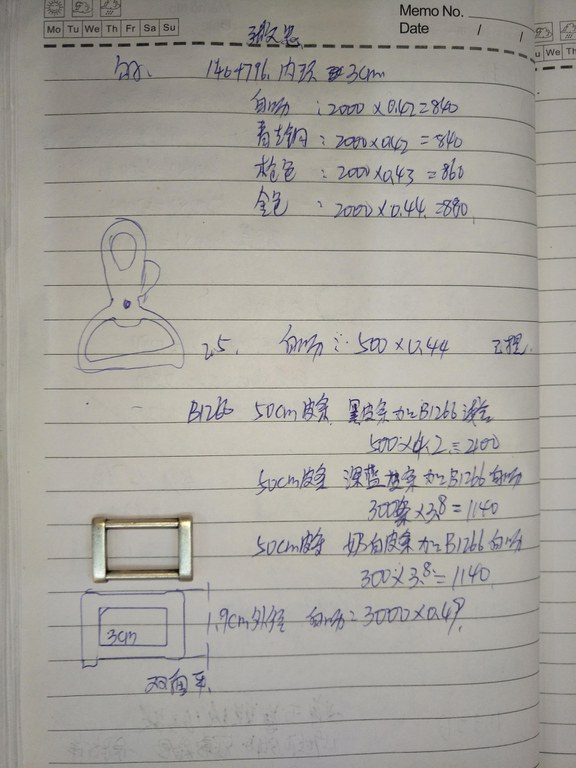 Memo No.
Date / /
Mo Tu We Th Fr Sa Su
u We Th
3cm
:2000×0.42=840
:2000×0.42=840
枪色 :2000×0.43=860
金色 :2000×0.44=880
2.5. 500×0.44
B1266 50cm皮条 黑皮条加B1266
500×4.2=2100
50cm皮条 深蓝皮条加B1266
300条×3.8=1140
50cm皮条 奶白皮条加B1266
300×3.8=1140
1.9cm外径 3000×0.49
3cm